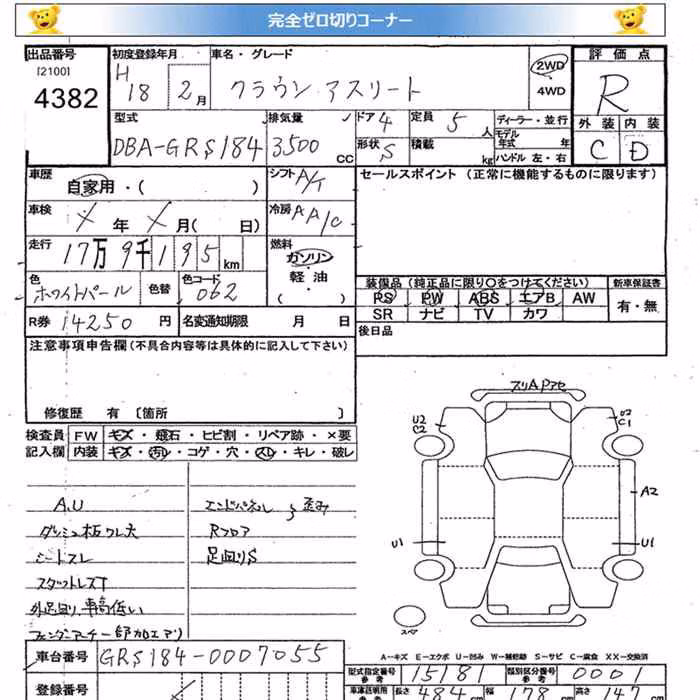 完全ゼロ切りコーナー
出品番号 初度登録年月 車名・グレード 評価点
[2100] H 2WD
4382 18 2月 クラウン アスリート 4WD R
型式 排気量 ドア 4 定員 5人 ディーラー・並行 外装 内装
モデル
DBA-GRS184 3500 CC 形状 S 積載 kg 年式 年 C D
ハンドル 左・右
車歴 シフト A/T セールスポイント (正常に機能するものに限ります)
自家用・( )
車検 冷房 AA/C
年 月( 日)
走行 17万9千195km 燃料
ガソリン
軽・油
( )
色 色替 色コード 装備品(純正品に限り○をつけてください) 新車保証書
ホワイトパール 062 PS PW ABS エアB AW 有・無
SR ナビ TV カワ
R券 14250円 名変通知期限 月 日 後日品
注意事項申告欄(不具合内容等は具体的に記入して下さい)
修復歴 有 〔箇所 〕
検査員 FW キズ・飛石・ヒビ割・リペア跡・×要
記入欄 内装 キズ・汚レ・コゲ・穴・スレ・キレ・破レ
スリAPアセ
U2 C2
U2 C1
A2
U1
U1
スペア
A.U エンドパネル 歪み
ダッシュ板ワレ大 Rフロア
シートスレ 足回りS
スタットレスT
外足回り、車高低い
フェンダーアーチ一部加エアリ
A-キズ E-エクボ U-凹み W-補修跡 S-サビ C-腐食 XX-交換済
車台番号 GRS184-0007055
型式指定番号 参考 15181 類別区分番号 参考 0001
登録番号
車検証明用 参考 長さ 484cm 幅 178cm 高さ 147cm